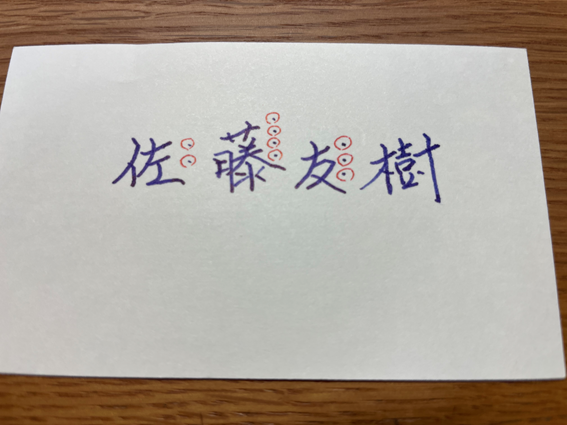 佐藤友樹